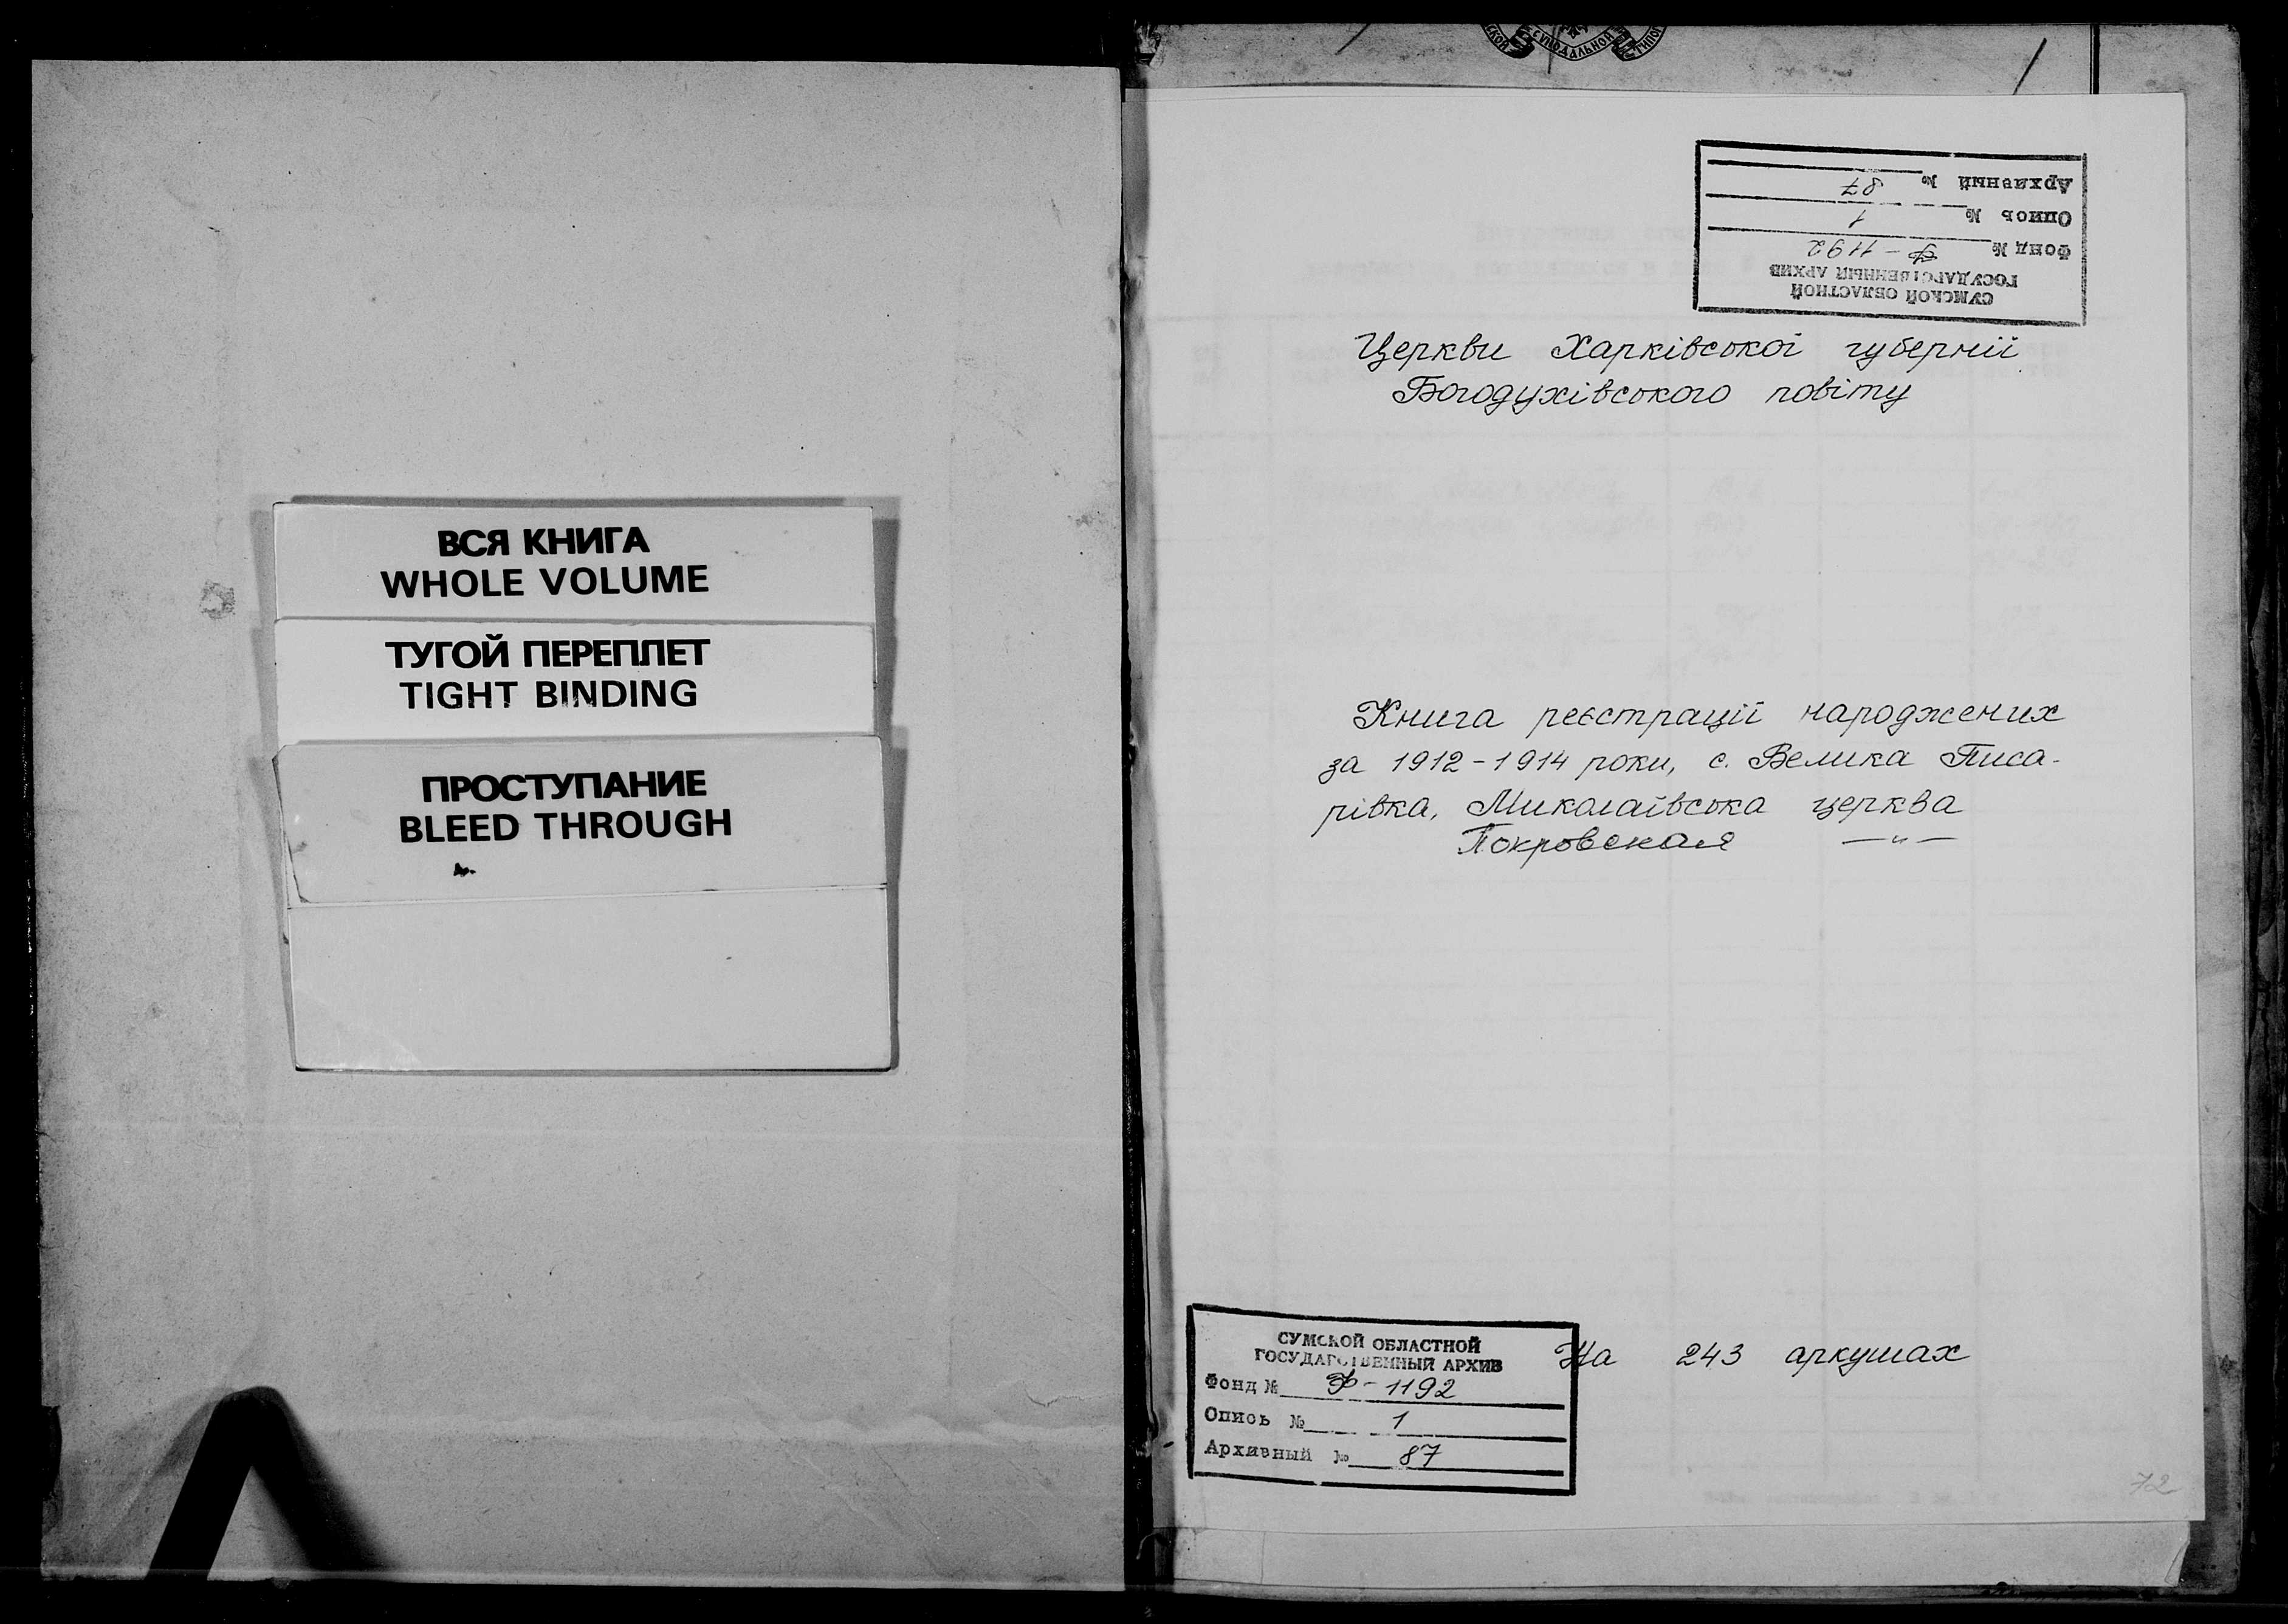 ВСЯ КНИГА
WHOLE VOLUME
ТУГОЙ ПЕРЕПЛЕТ
TIGHT BINDING
ПРОСТУПАНИЕ
BLEED THROUGH
СИНОДАЛЬНОЙ
СУМСКОЙ ОБЛАСТНОЙ
ГОСУДАРСТВЕННЫЙ АРХИВ
Фонд № Ф-1192
Опись № 1
Архивный № 87
Церкви Харківської губернії
Богодухівського повіту
Книга реєстрації народжених
за 1912-1914 роки, с. Велика Писа-
рівка, Миколаївська церква
Покровская —"—
СУМСКОЙ ОБЛАСТНОЙ
ГОСУДАРСТВЕННЫЙ АРХИВ
Фонд № Ф-1192
Опись № 1
Архивный № 87
На 243 аркушах
72